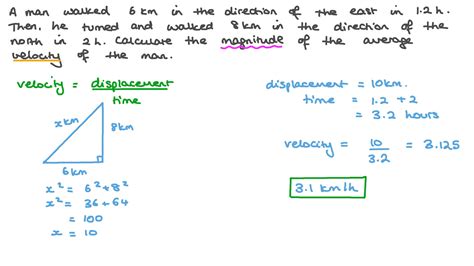 A man walked 6 km in the direction of the east in 1.2 h.
Then, he turned and walked 8 km in the direction of the
north in 2 h. Calculate the magnitude of the average
velocity of the man.
velocity = displacement
time
x km
8 km
6 km
x² = 6² + 8²
x² = 36 + 64
= 100
x = 10
displacement = 10 km.
time = 1.2 + 2
= 3.2 hours
velocity = 10 = 3.125
3.2
3.1 km/h